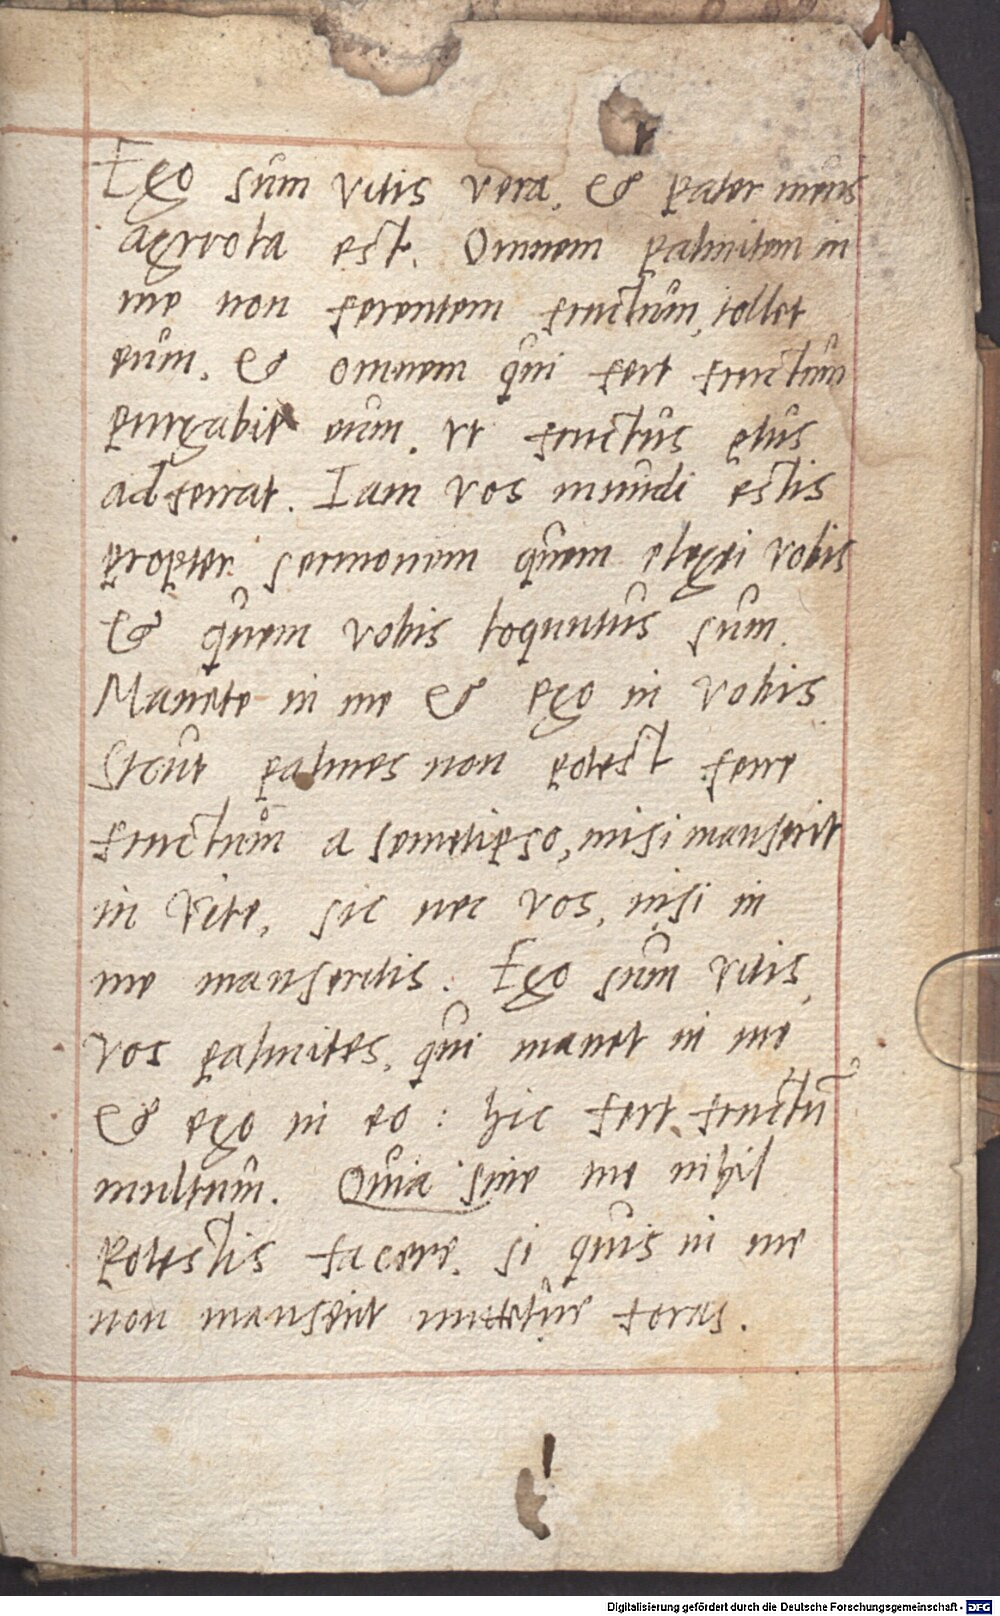 Ego sum vitis vera, & pater meus
agrvola est. Omnem palmitem in
me non ferentem fructum, tollet
eum, & omnem qui fert fructum
purgabit eum, vt fructus
adferrat. Iam vos mundi estis
propter sermonem quem elegi vobis
& quem vobis loquutus sum.
Manete in me & ego in vobis
Sicut palmes non potest ferre
fructum a semetipso, nisi manserit
in vite, sic nec vos, nisi in
me manseritis. Ego sum vitis,
vos palmites, qui manet in me
& ego in eo: hic fert fructū
multum. Quia sine me nihil
potestis facere, si quis in me
non manserit mittetur foras.
Digitalisierung gefördert durch die Deutsche Forschungsgemeinschaft - DFG